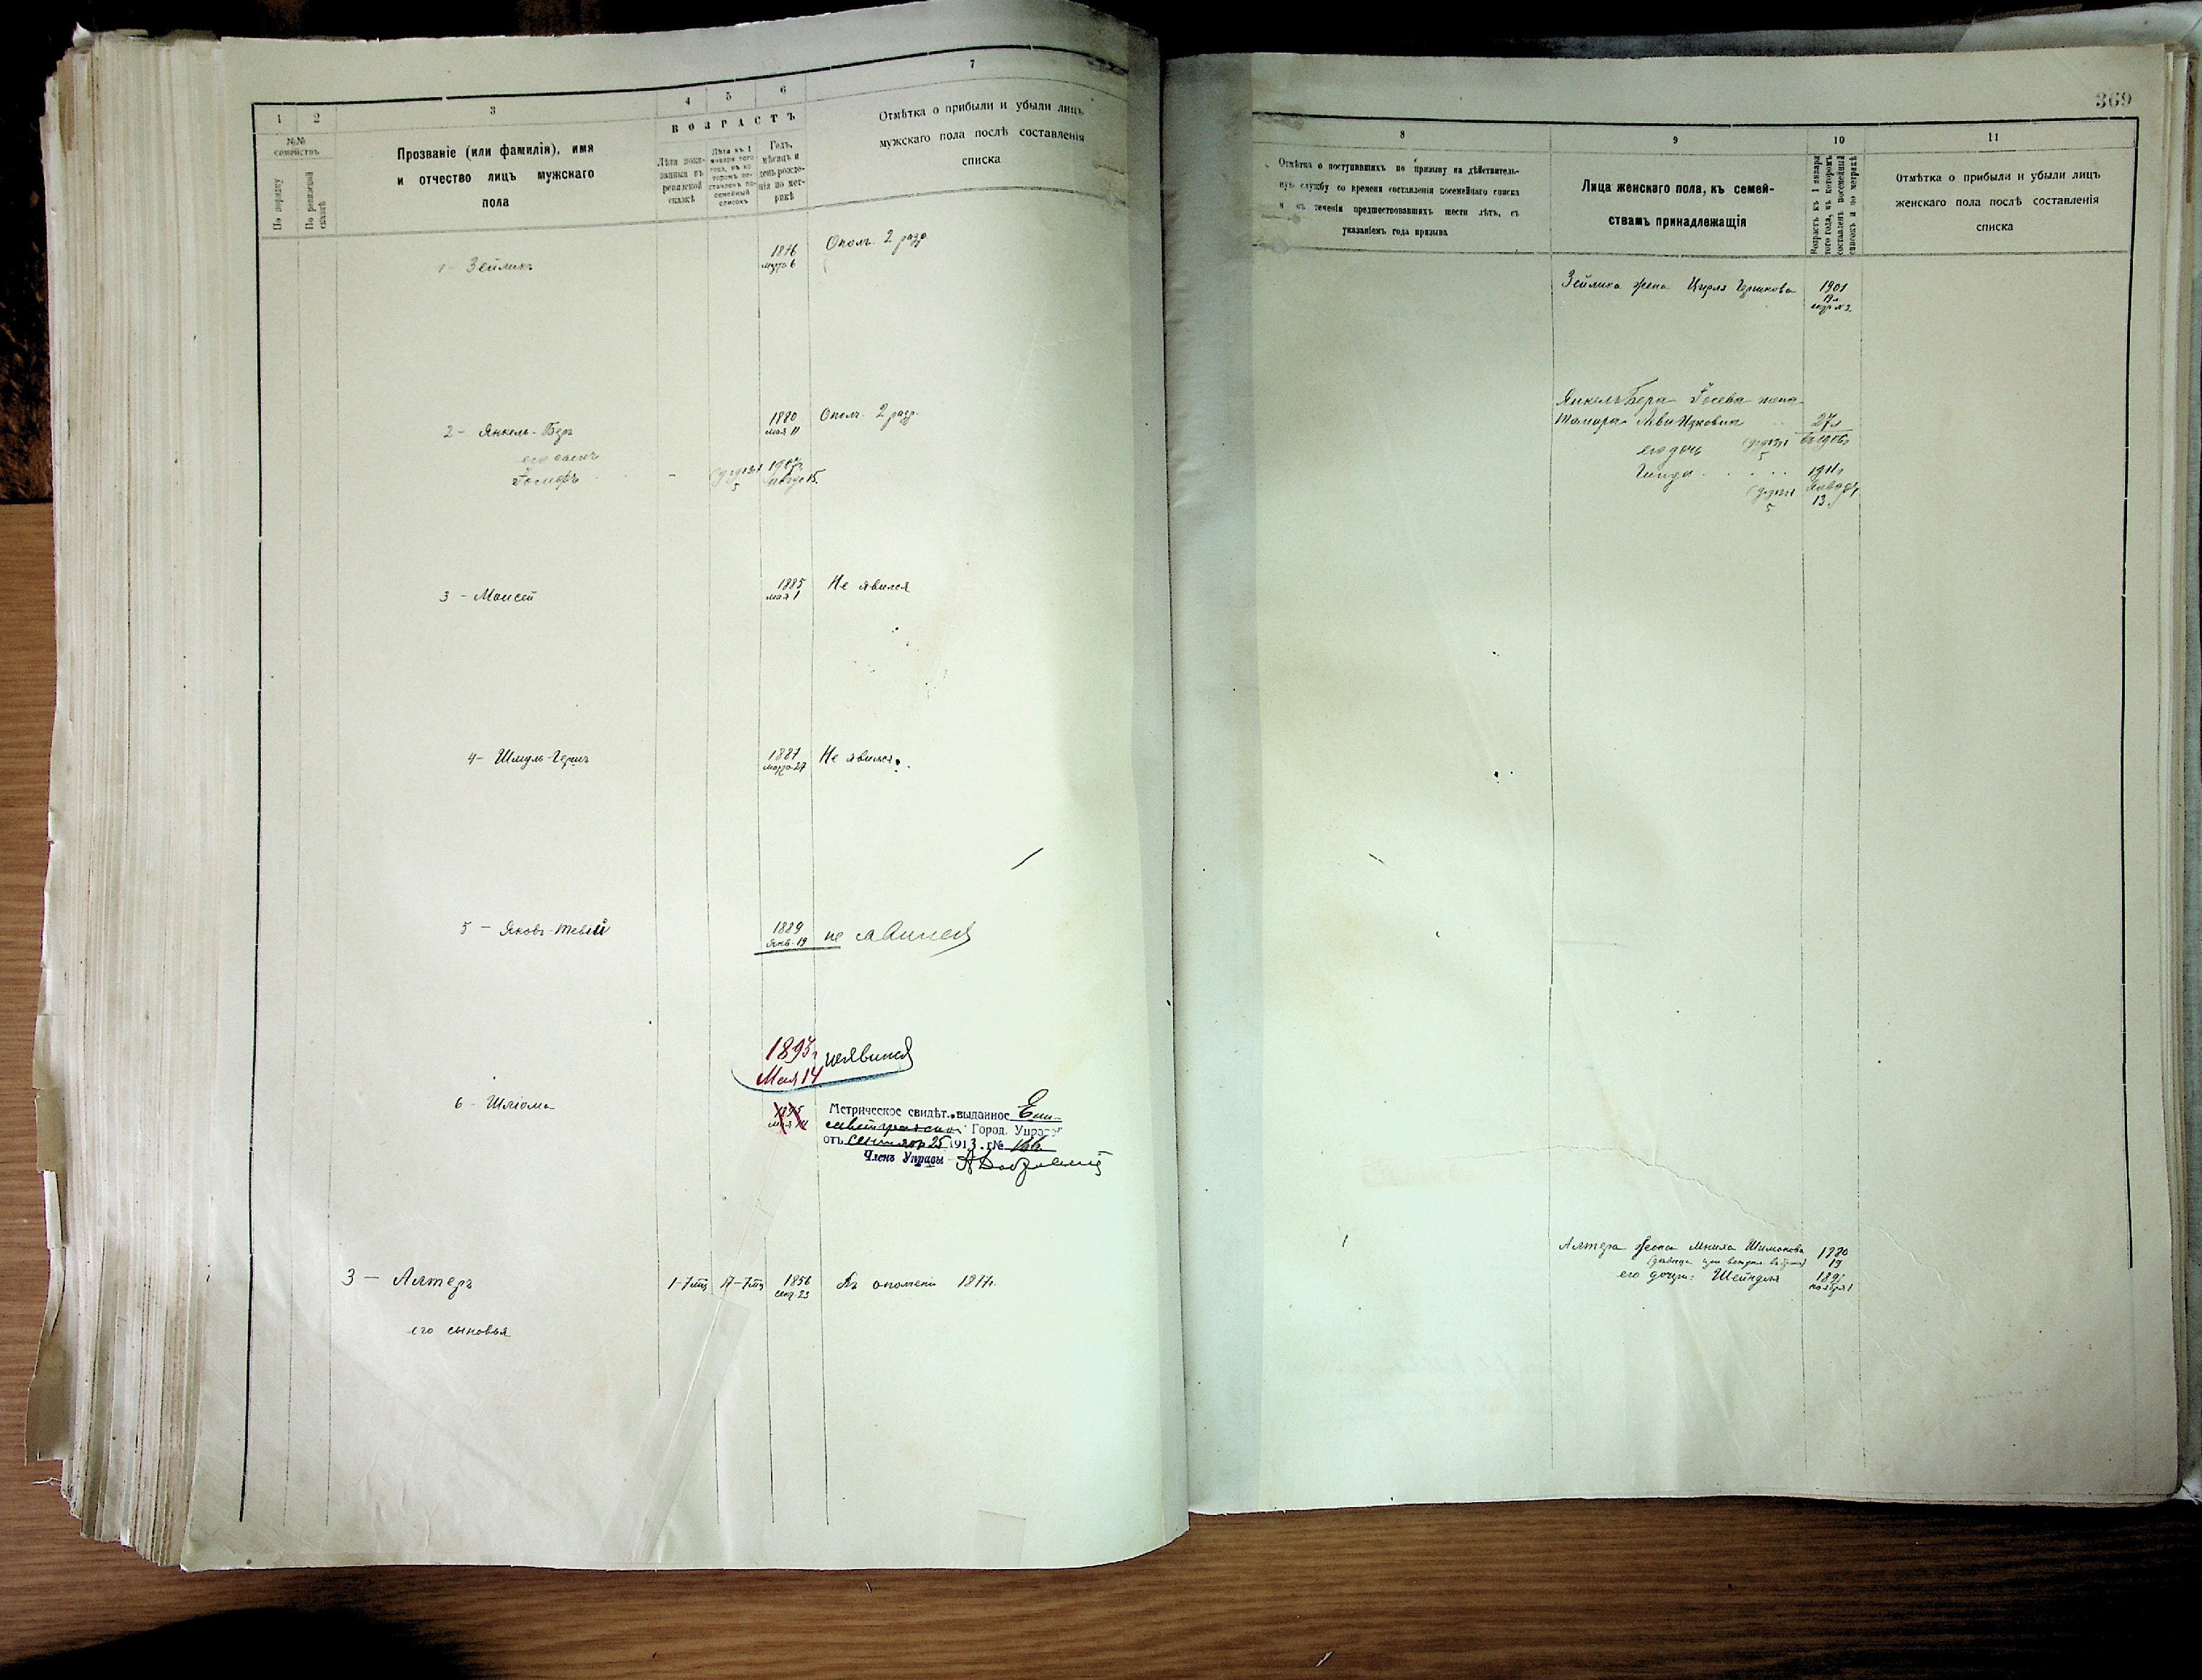 1 2 3 4 5 6 7
№№ семействъ
По порядку
По ревизской сказкѣ
Прозваніе (или фамилія), имя
и отчество лицъ мужскаго
пола
ВОЗРАСТЪ
Лѣта пока-
занныя въ
ревизской
сказкѣ
Лѣта къ 1
января того
года, въ ко-
торомъ со-
ставленъ по-
семейный
списокъ
Годъ,
мѣсяцъ и
день рожде-
нія по мет-
рикѣ
Отмѣтка о прибыли и убыли лицъ
мужскаго пола послѣ составленія
списка
1 - Зейликъ 1876 Ополч. 2 разр
2 - Янкель-Беръ 1880 мая 11 Ополч. 2 разр.
его сынъ
Іосифъ
3 - Моисей 1885 мая 1 Не явился
4 - Шмуль-Гершъ 1887 Не явился
5 - Яковъ-Тевій 1889 Янв. 19 не явился
1893г неявился
Мая 14
6 - Шліома
Метрическое свидѣт. выданное Ели-
саветградской Город. Управой
отъ 25 1913 г №
Членъ Управы
3 - Алтеръ 1-7 мц 17-7 мц 1856 сент. 23 Въ ополченіи 1877г.
его сыновья
369
8 9 10 11
Отмѣтка о поступившихъ по призыву на дѣйствитель-
ную службу со времени составленія посемейнаго списка
и въ теченіи предшествовавшихъ шести лѣтъ, съ
указаніемъ года призыва
Лица женскаго пола, къ семей-
ствамъ принадлежащія
Возрастъ къ 1 января
того года, въ которомъ
составленъ посемейный
списокъ и по метрикѣ
Отмѣтка о прибыли и убыли лицъ
женскаго пола послѣ составленія
списка
Зейлика жена Цирля Гершкова 1901
Янкель-Бера Іосева жена
Тамара 27л
его дочь
1911г
13
Алтера жена Шимонова 1880
19
его дочери: Шейндля
ноября 1